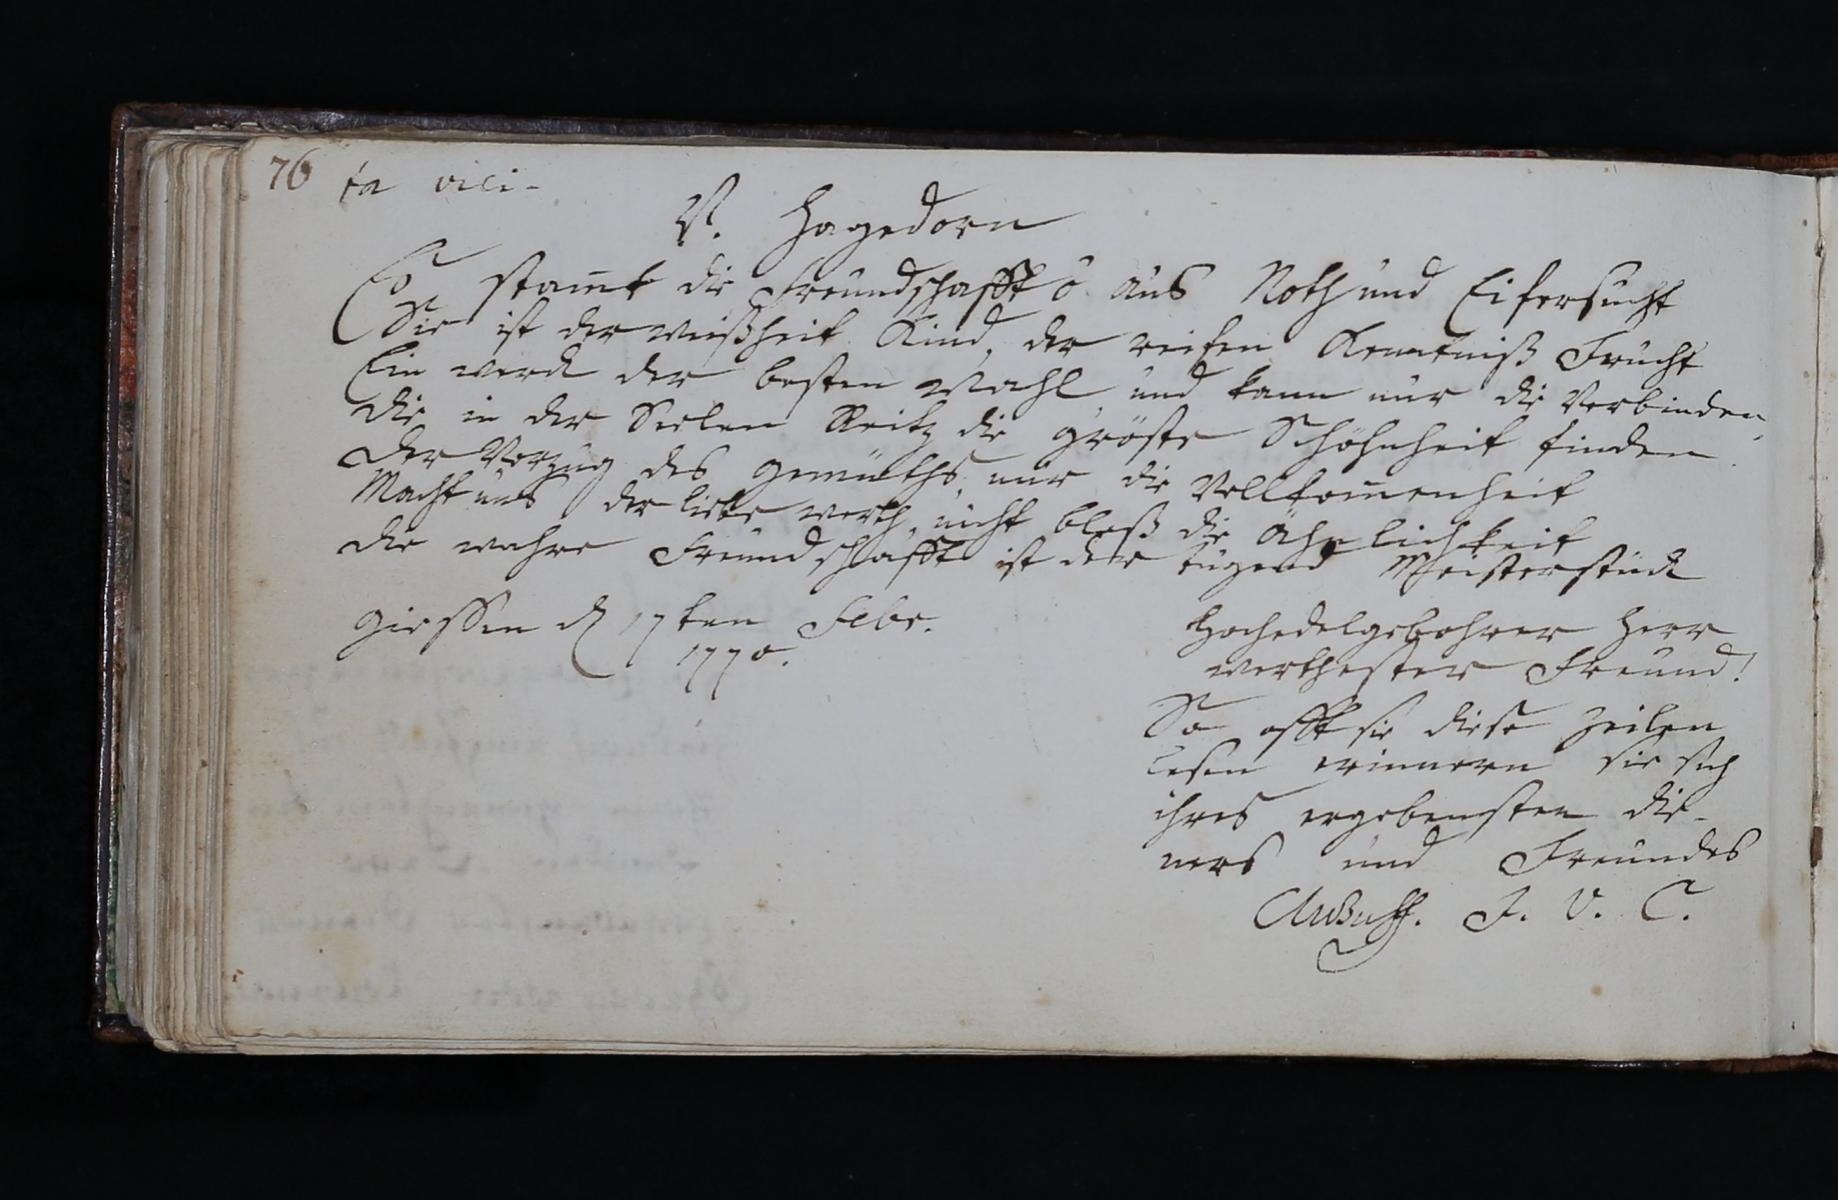 76 ta vici-
V. Hagedorn
Es stam̄t die Freundschafft ō aus Noth und Eifersucht
Sie ist der weißheit Kind, der reifen Kenntniß Frucht
Ein werck der besten Wahl und kann nur die Verbinden,
die in der Seelen Reitz die gröste Schöhnheit finden
der Vorzug des gemüths, nur die Vollkom̄enheit
Macht uns der liebe werth, nicht bloß die Ähnlichkeit
die wahre Freundschafft ist der tugend Meisterstück
Giessen d 17ten Febr.
1770.
Hochedelgebohrner Herr
werthester Freund!
So offt sie diese Zeilen
lesen erinnern sie sich
ihres ergebensten die-
ners und Freundes
J. V. C.